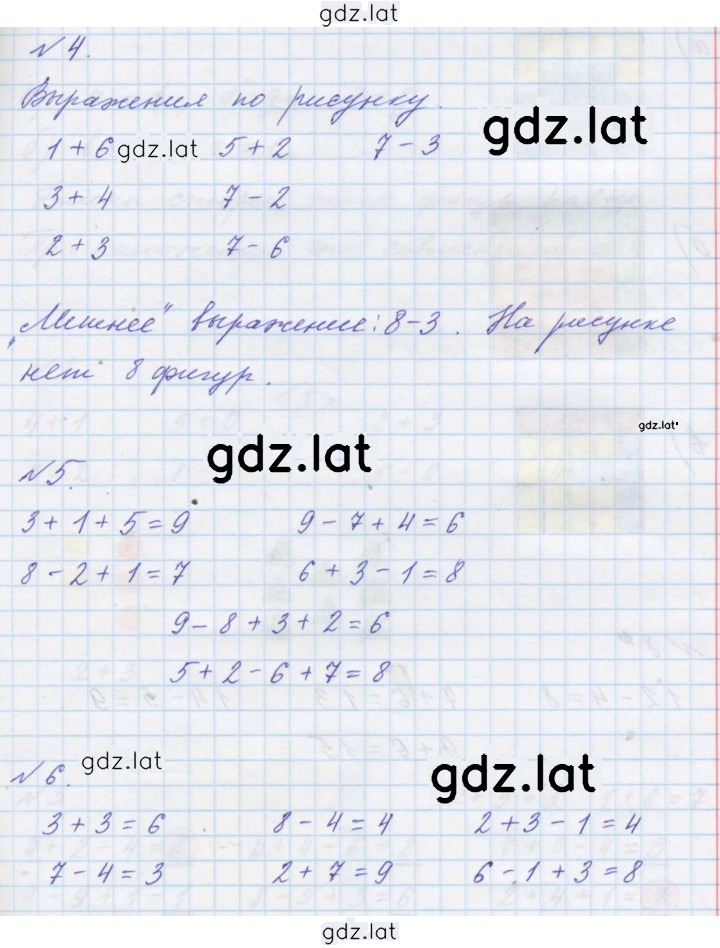 gdz.lat
№ 4.
Выражения по рисунку.
gdz.lat
1 + 6 gdz.lat 5 + 2 7 - 3
3 + 4 7 - 2
2 + 3 7 - 6
„Лишнее" выражение: 8-3. На рисунке
нет 8 фигур.
gdz.lat
gdz.lat
№ 5.
3 + 1 + 5 = 9 9 - 7 + 4 = 6
8 - 2 + 1 = 7 6 + 3 - 1 = 8
9 - 8 + 3 + 2 = 6
5 + 2 - 6 + 7 = 8
№ 6. gdz.lat
gdz.lat
3 + 3 = 6 8 - 4 = 4 2 + 3 - 1 = 4
7 - 4 = 3 2 + 7 = 9 6 - 1 + 3 = 8
gdz.lat